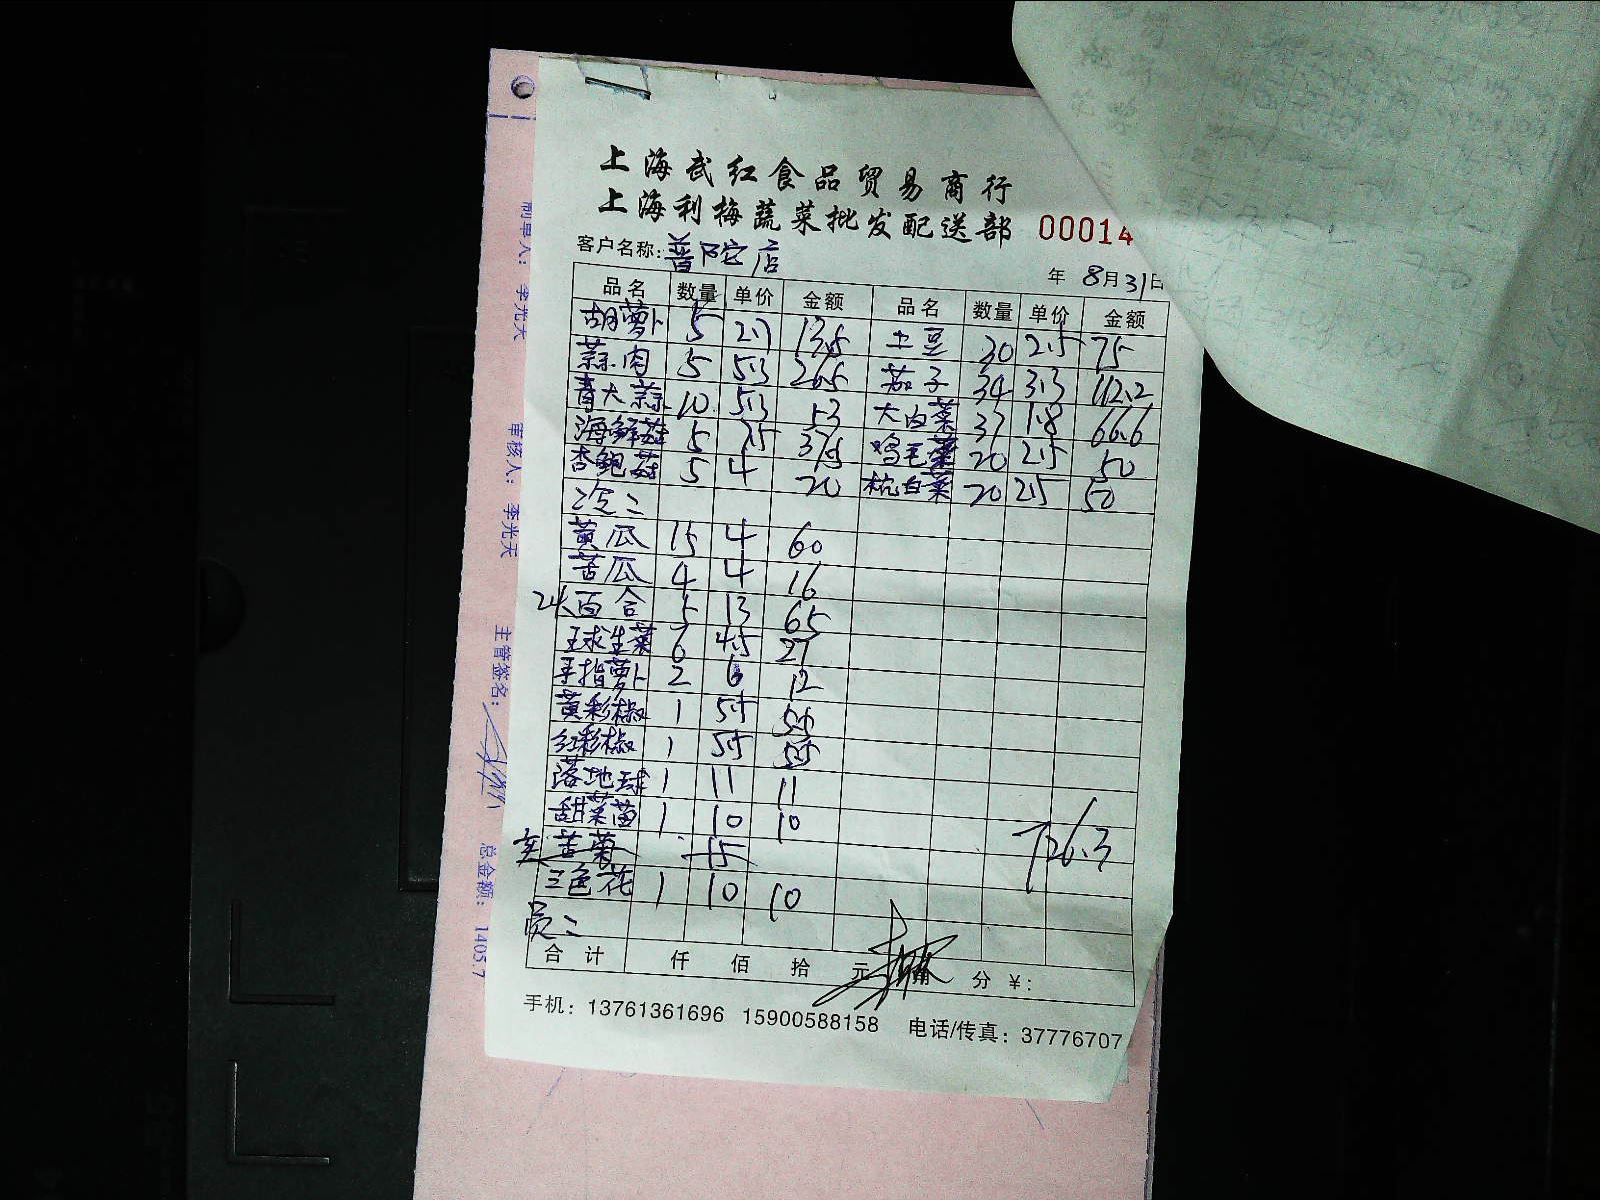 上海武红食品贸易商行
上海利梅蔬菜批发配送部 00014
客户名称:普陀店
年 8月31日
品名 数量 单价 金额 品名 数量 单价 金额
胡萝卜 5 2.7 13.5 土豆 30 2.5 75
蒜肉 5 5.3 26.5 茄子 34 3.3 112.2
青大蒜 10 5.3 53 大白菜 37 1.8 66.6
海鲜菇 5 7.5 37.5 鸡毛菜 20 2.5 50
杏鲍菇 5 4 20 杭白菜 20 2.5 50
黄瓜 15 4 60
苦瓜 4 4 16
百合 5 13 65
球生菜 6 4.5 27
手指萝卜 2 6 12
黄彩椒 1 5.5 5.5
红彩椒 1 5.5 5.5
落地球 1 11 11
甜菜苗 1 10 10
苦菊 15
726.3
三色花 1 10 10
合计 仟 佰 拾 元 角 分 ¥:
手机: 13761361696 15900588158 电话/传真: 37776707
制单人: 李光天
审核人: 李光天
主管签名:
总金额: 1405.7